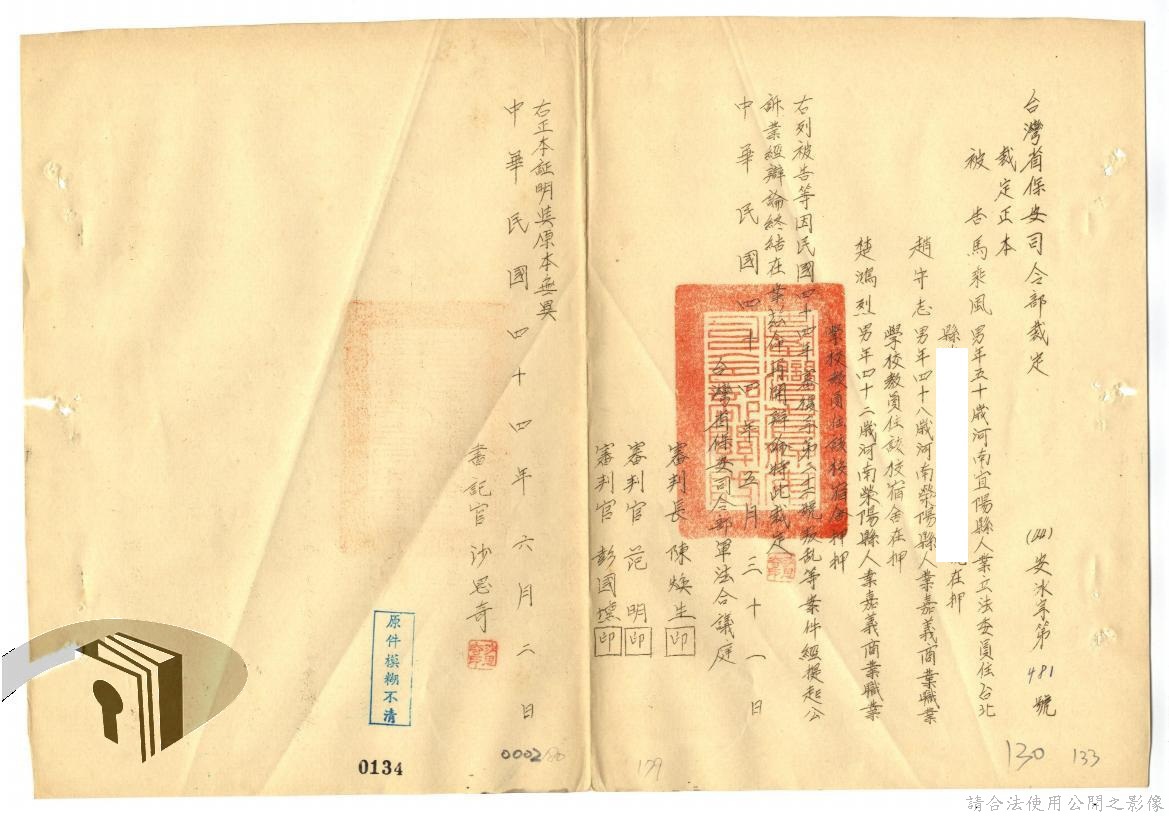 台灣省保安司令部裁定
(44)安冰字第481號
裁定正本
被告馬乘風男年五十歲河南宜陽縣人業立法委員住台北
縣 現在押
趙守志男年四十八歲河南滎陽縣人業嘉義商業職業
學校教員住該校宿舍在押
楚鴻烈男年四十二歲河南滎陽縣人業嘉義商業職業
學校教員住該校宿舍在押
右列被告等因民國四十四年審復字第 號叛乱等案件經提起公
訴業經辯論終結在案茲命再開辯論特此裁定
中華民國四十四年五月三十一日
台灣省保安司令部軍法合議庭
審判長陳煥生印
審判官范明印
審判官彭國壎印
右正本証明與原本無異
中華民國四十四年六月二日
書記官沙 奇
原件模糊不清
130
133
179
0002/80
0134
請合法使用公開之影像